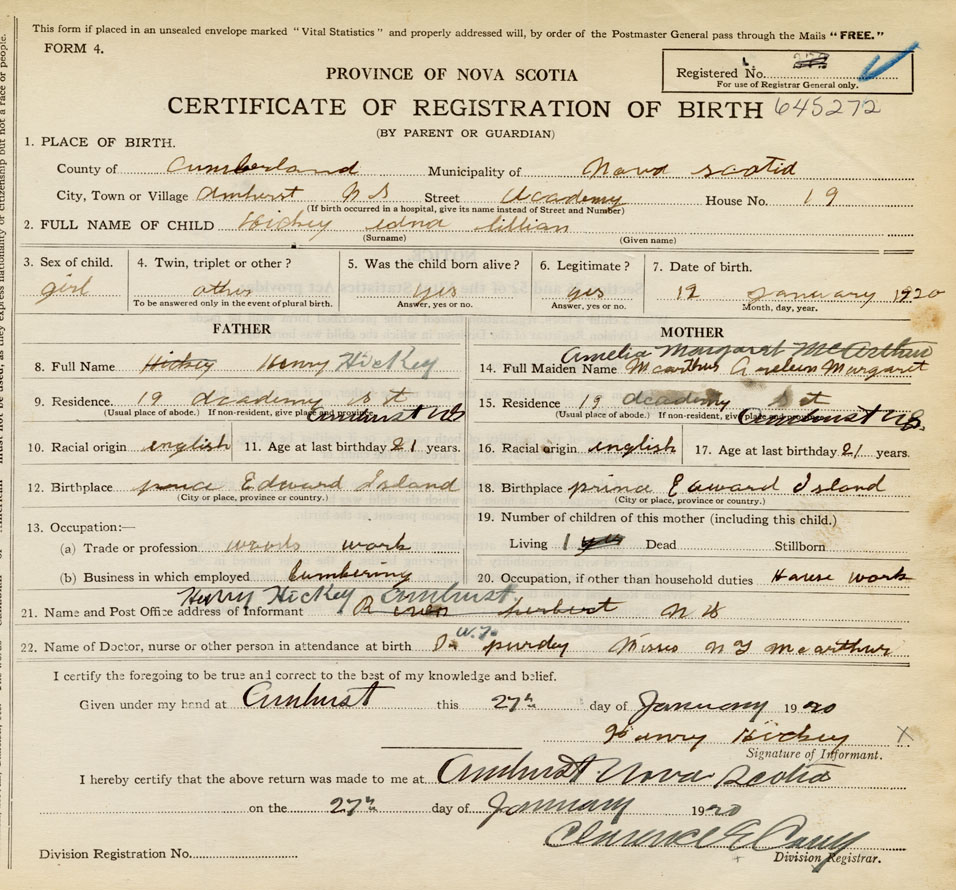 This form if placed in an unsealed envelope marked "Vital Statistics" and properly addressed will, by order of the Postmaster General pass through the Mails "FREE."
FORM 4.
PROVINCE OF NOVA SCOTIA
Registered No.
For use of Registrar General only.
CERTIFICATE OF REGISTRATION OF BIRTH 645272
(BY PARENT OR GUARDIAN)
1. PLACE OF BIRTH.
County of Cumberland Municipality of Nova scotia
City, Town or Village Amhurst N S Street Academy House No. 19
(If birth occurred in a hospital, give its name instead of Street and Number)
2. FULL NAME OF CHILD Hickey edna lillian
(Surname) (Given name)
3. Sex of child. 4. Twin, triplet or other? 5. Was the child born alive? 6. Legitimate? 7. Date of birth.
girl other yes yes 12 January 1920
To be answered only in the event of plural birth. Answer, yes or no. Answer, yes or no. Month, day, year.
FATHER
8. Full Name Hickey Henry Hickey
9. Residence 19 Academy St
(Usual place of abode.) If non-resident, give place and province. Amhurst NS
10. Racial origin english 11. Age at last birthday 21 years.
12. Birthplace prince Edward Island
(City or place, province or country.)
13. Occupation:—
(a) Trade or profession woods work
(b) Business in which employed lumbering
MOTHER
Amelia Margaret McArthur
14. Full Maiden Name Mcarthur Margaret
15. Residence 19 Academy St
(Usual place of abode.) If non-resident, give place and province. Amhurst NS.
16. Racial origin english 17. Age at last birthday 21 years.
18. Birthplace prince Edward Island
(City or place, province or country.)
19. Number of children of this mother (including this child.)
Living 1 yes Dead Stillborn
20. Occupation, if other than household duties House work
Henry Hickey Amhurst
21. Name and Post Office address of Informant River herbert N S
22. Name of Doctor, nurse or other person in attendance at birth Dr W.T. purdy Misses Mcarthur
I certify the foregoing to be true and correct to the best of my knowledge and belief.
Given under my hand at Amhurst this 27th day of January 1920
Henry Hickey X
Signature of Informant.
I hereby certify that the above return was made to me at Amhurst Nova Scotia
on the 27th day of January 1920
Clarence E
Division Registrar.
Division Registration No.